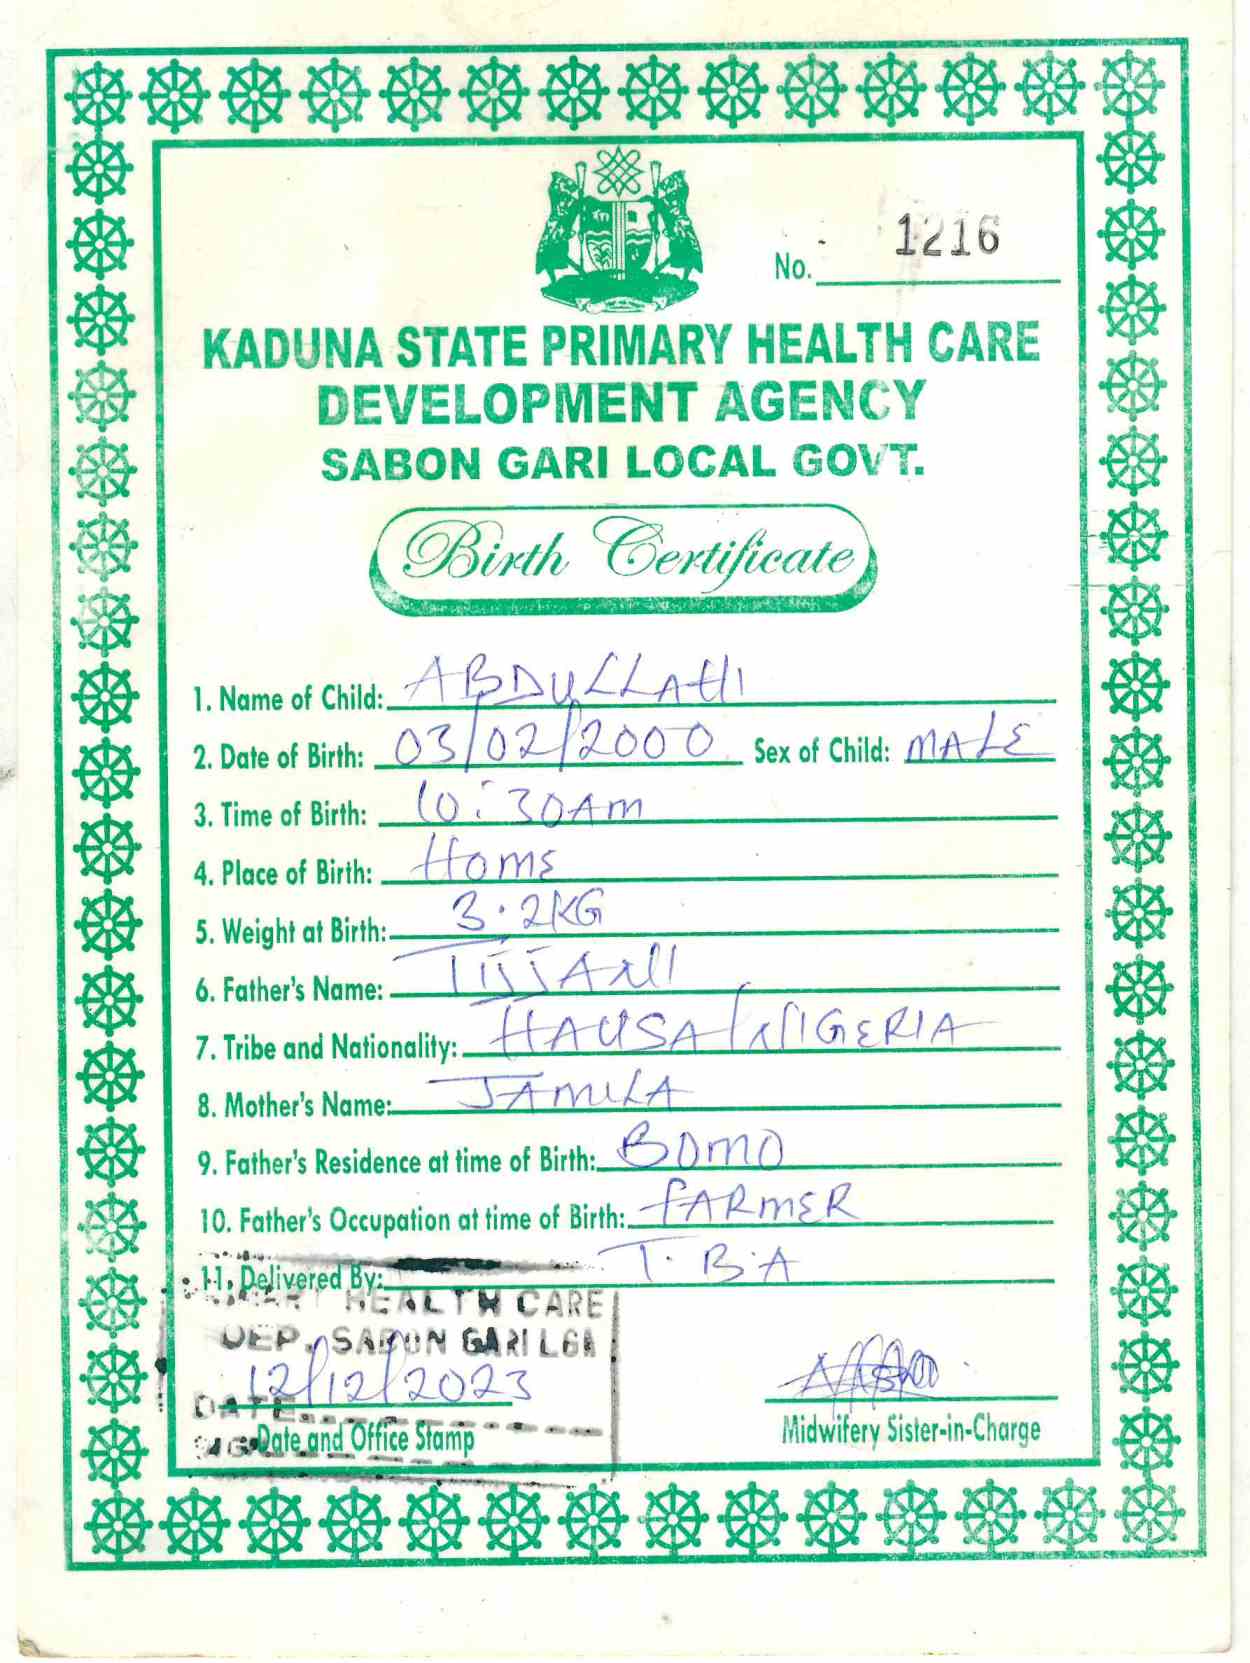 No. 1216
KADUNA STATE PRIMARY HEALTH CARE
DEVELOPMENT AGENCY
SABON GARI LOCAL GOVT.
Birth Certificate
1. Name of Child: ABDULLAHI
2. Date of Birth: 03/02/2000 Sex of Child: MALE
3. Time of Birth: 10:30AM
4. Place of Birth: Home
5. Weight at Birth: 3.2KG
6. Father's Name: TIJJANI
7. Tribe and Nationality: HAUSA/NIGERIA
8. Mother's Name: JAMILA
9. Father's Residence at time of Birth: BOMO
10. Father's Occupation at time of Birth: FARMER
11. Delivered By: T.B.A
HEALTH CARE
DEP. SABON GARI LGA
12/12/2023
DATE
Date and Office Stamp
Midwifery Sister-in-Charge